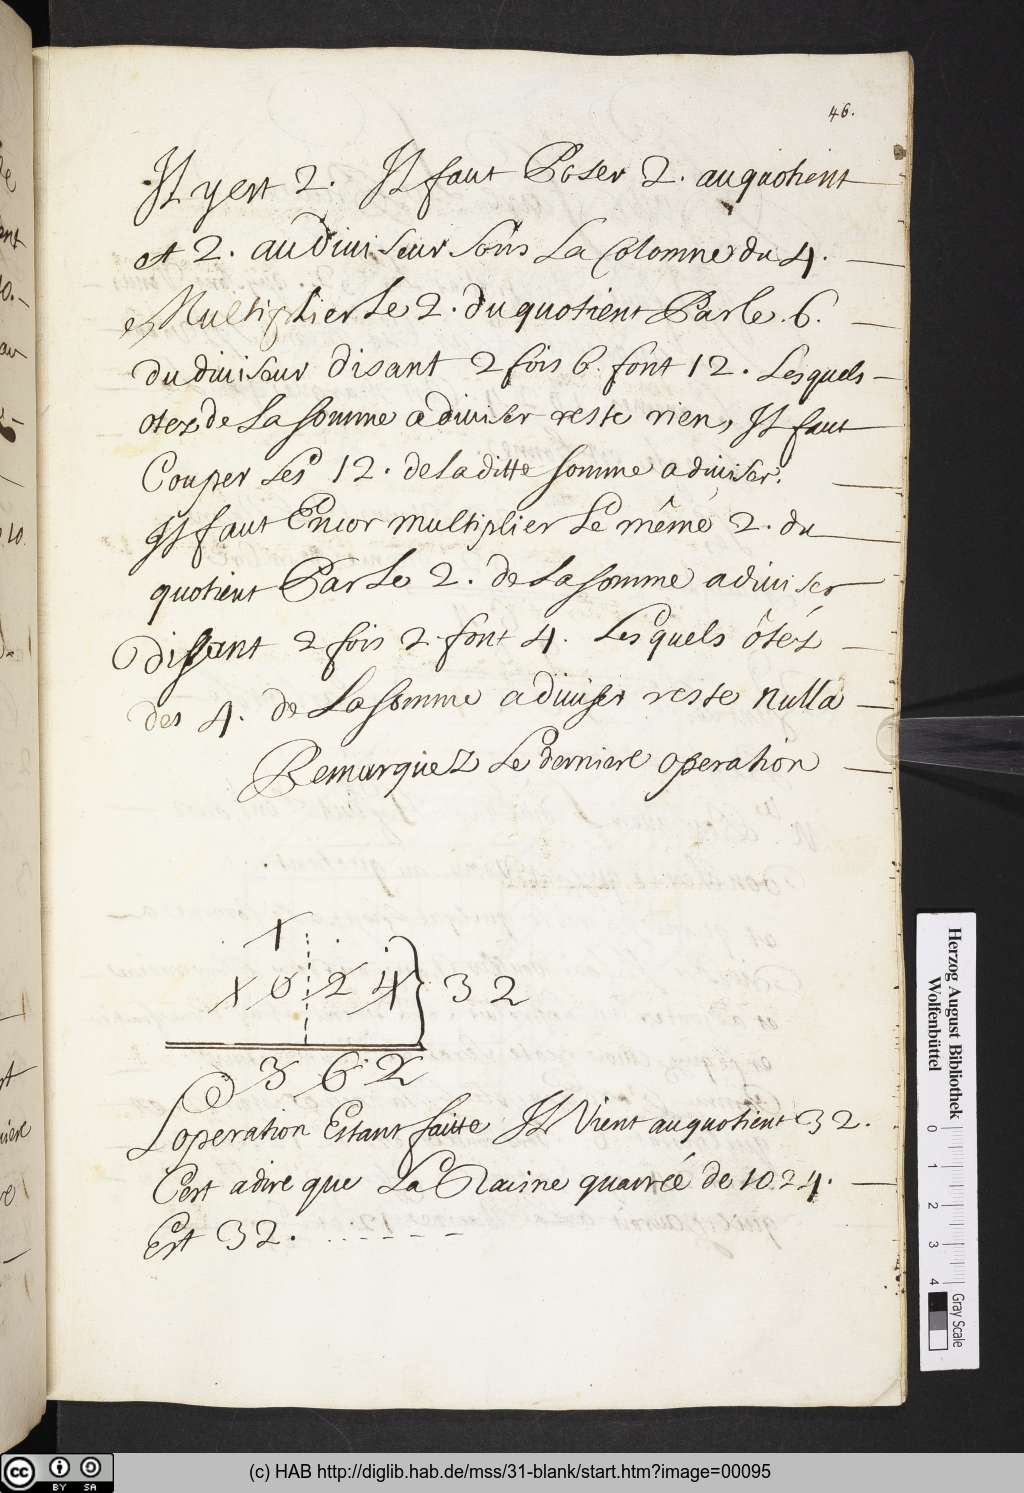 46.
Il y est 2. Il faut Poser 2. au quotient
et 2. au Diviseur sous La Colomne du 4.
et Multiplier Le 2. du quotient Par le 6.
du diviseur disant 2 fois 6. font 12. Lesquels
otez de La somme a diviser reste rien, Il faut
Couper Les 12. de la ditte somme a diviser.
Il faut Encor multiplier Le même 2. du
quotient Par Le 2. de La somme a diviser
Disant 2 fois 2. font 4. Lesquels ôtéz
des 4. de La somme a diviser reste nulla
Remarquez Le derniere operation
1
1 0 2 4 } 3 2
3 6 2
L'operation Estant faitte Il Vient au quotient 32.
C'est a dire que La Racine quarréé de 10.24.
Est 32. . . . - - - -
Herzog August Bibliothek
Wolfenbüttel
0 1 2 3 4
Gray Scale
cc BY SA
(c) HAB http://diglib.hab.de/mss/31-blank/start.htm?image=00095